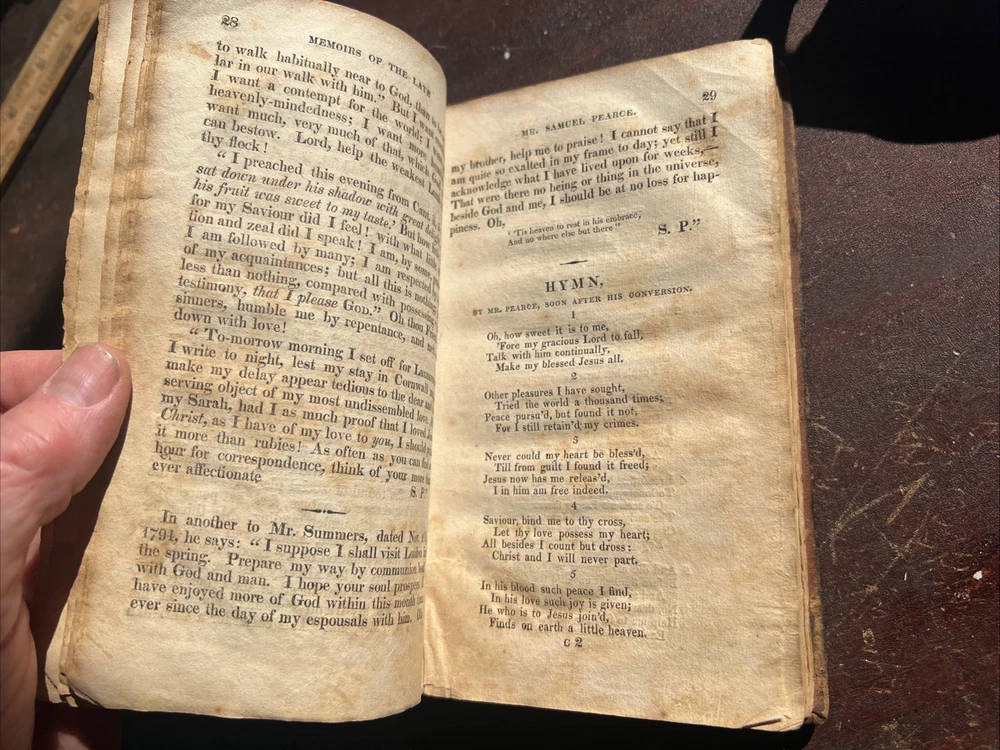 28
MEMOIRS OF THE LATE
to walk habitually near to God, than to be
lar in our walk with him." But I want
I want a contempt for the world; I want
heavenly-mindedness; I want more
want much, very much of that, which God
can bestow. Lord, help the weakest
thy flock!
"I preached this evening from Cant.
sat down under his shadow with great delight
his fruit was sweet to my taste.' But how
for my Saviour did I feel! with what
tion and zeal did I speak! I am, by some,
I am followed by many; I am respected
of my acquaintances; but all this is nothing
less than nothing, compared with possessing
testimony, that I please God." Oh thou
sinners, humble me by repentance, and
down with love!
"To-morrow morning I set off for
I write to night, lest my stay in Cornwall
make my delay appear tedious to the dear and
serving object of my most undissembled love.
my Sarah, had I as much proof that I loved
Christ, as I have of my love to you, I should
it more than rubies! As often as you can
hour for correspondence, think of your more
ever affectionate
S. P."
In another to Mr. Summers, dated
1794, he says: "I suppose I shall visit London
the spring. Prepare my way by communion
with God and man. I hope your soul prospers
have enjoyed more of God within this month
ever since the day of my espousals with him.
29
MR. SAMUEL PEARCE.
my brother, help me to praise! I cannot say that I
am quite so exalted in my frame to day; yet still I
acknowledge what I have lived upon for weeks,—
That were there no being or thing in the universe,
beside God and me, I should be at no loss for hap-
piness. Oh,
"'Tis heaven to rest in his embrace,
And no where else but there"
S. P."
HYMN,
BY MR. PEARCE, SOON AFTER HIS CONVERSION.
1
Oh, how sweet it is to me,
'Fore my gracious Lord to fall,
Talk with him continually,
Make my blessed Jesus all.
2
Other pleasures I have sought,
Tried the world a thousand times;
Peace pursu'd, but found it not,
For I still retain'd my crimes.
3
Never could my heart be bless'd,
Till from guilt I found it freed;
Jesus now has me releas'd,
I in him am free indeed.
4
Saviour, bind me to thy cross,
Let thy love possess my heart;
All besides I count but dross:
Christ and I will never part.
5
In his blood such peace I find,
In his love such joy is given;
He who is to Jesus join'd,
Finds on earth a little heaven.
C 2